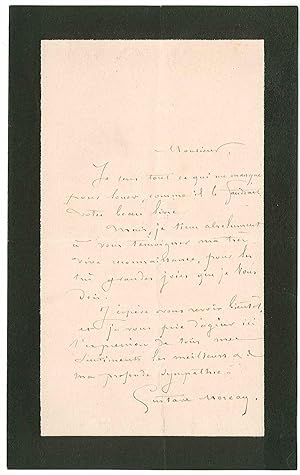 Monsieur,
Je sens tout ce qui me manque
pour louer, comme il le faudrait
votre beau livre.
Mais, je tiens absolument
à vous témoigner ma très
vive reconnaissance, pour les
très grandes joies que je vous
dois.
J'espère vous revoir bientôt,
et je vous prie d'agréer ici
l'expression de tous mes
sentiments les meilleurs & de
ma profonde sympathie.
Gustave Moreau.